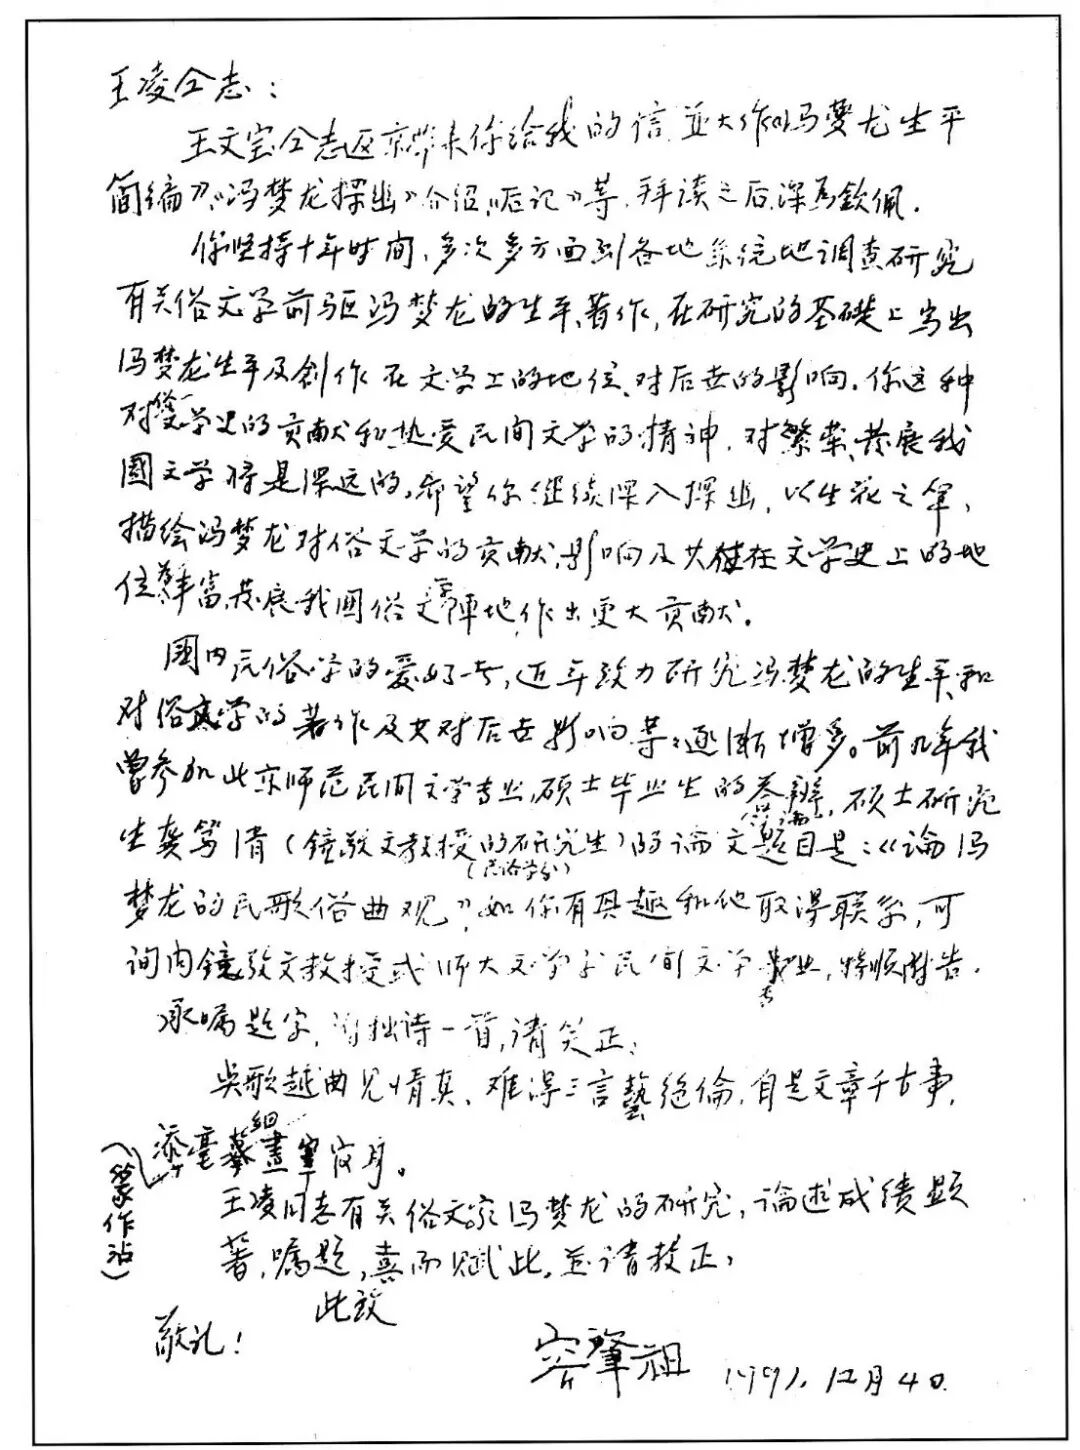 王凌仝志：
王文宝仝志返京带来你给我的信並大作《冯梦龙生平
简编》《冯梦龙探幽》介绍《后记》等，拜读之后，深为钦佩.
你坚持十年时间，多次多方面到各地系统地调查研究
有关俗文学前驱冯梦龙的生平、著作，在研究的基礎上写出
冯梦龙生平及创作在文学上的地位、对后世的影响. 你这种
对文学史的贡献和热爱民间文学的精神，对繁荣、发展我
國文学将是深远的。希望你继续深入探幽，以生花之笔，
描绘冯梦龙对俗文学的贡献、影响及其在文学史上的地
位，丰富、发展我国俗文学陣地，作出更大贡献。
國内民俗学的爱好者，近年致力研究冯梦龙的生平、和
对俗文学的著作及其对后世影响等逐渐增多。前几年我
曾参加北京师范民间文学专业硕士毕业生的答辨，硕士研究
生龚笃清（鐘敬文教授的研究生）的论文题目是：《论冯
（民俗学会）
梦龙的民歌俗曲观》，如你有兴趣和他取得联系，可
询问鐘敬文教授或师大文学系民间文学专业，特顺附告.
承嘱题字，拙诗一首，请笑正：
吳歌越曲见情真，难得三言藝绝倫，自是文章千古事，
添毫細畫寧寂身。
（篆作沾）
王凌同志有关俗文家冯梦龙的研究，论述成绩显
著，嘱题，喜而赋此，並请教正，
此致
敬礼！
容肇祖 1991.12月4日